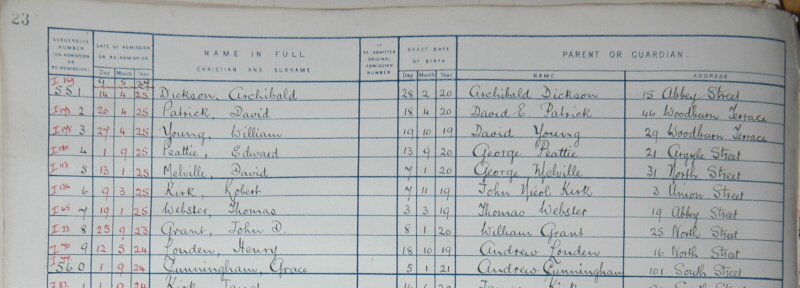 23
SUCCESSIVE NUMBER (ON ADMISSION OR RE-ADMISSION) DATE OF ADMISSION OR RE-ADMISSION NAME IN FULL IF RE-ADMITTED ORIGINAL ADMISSION NUMBER EXACT DATE OF BIRTH PARENT OR GUARDIAN.
Day Month Year CHRISTIAN AND SURNAME Day Month Year NAME ADDRESS
551 14 4 25 Dickson, Archibald 28 2 20 Archibald Dickson 15 Abbey Street
2 20 4 25 Patrick, David 18 4 20 David E. Patrick 46 Woodburn Terrace
3 27 4 25 Young, William 19 10 19 David Young 29 Woodburn Terrace
4 1 9 25 Peattie, Edward 13 9 20 George Peattie 21 Argyle Street
5 13 1 25 Melville, David 7 1 20 George Melville 31 North Street
6 9 3 25 Kirk, Robert 7 11 19 John Nicol Kirk 3 Union Street
7 19 1 25 Webster, Thomas 3 3 19 Thomas Webster 19 Abbey Street
8 25 9 23 Grant, John D. 8 1 20 William Grant 25 North Street
9 12 5 24 Louden, Henry 18 10 19 Andrew Louden 16 North Street
560 1 9 24 Cunningham, Grace 5 1 21 Andrew Cunningham 101 South Street